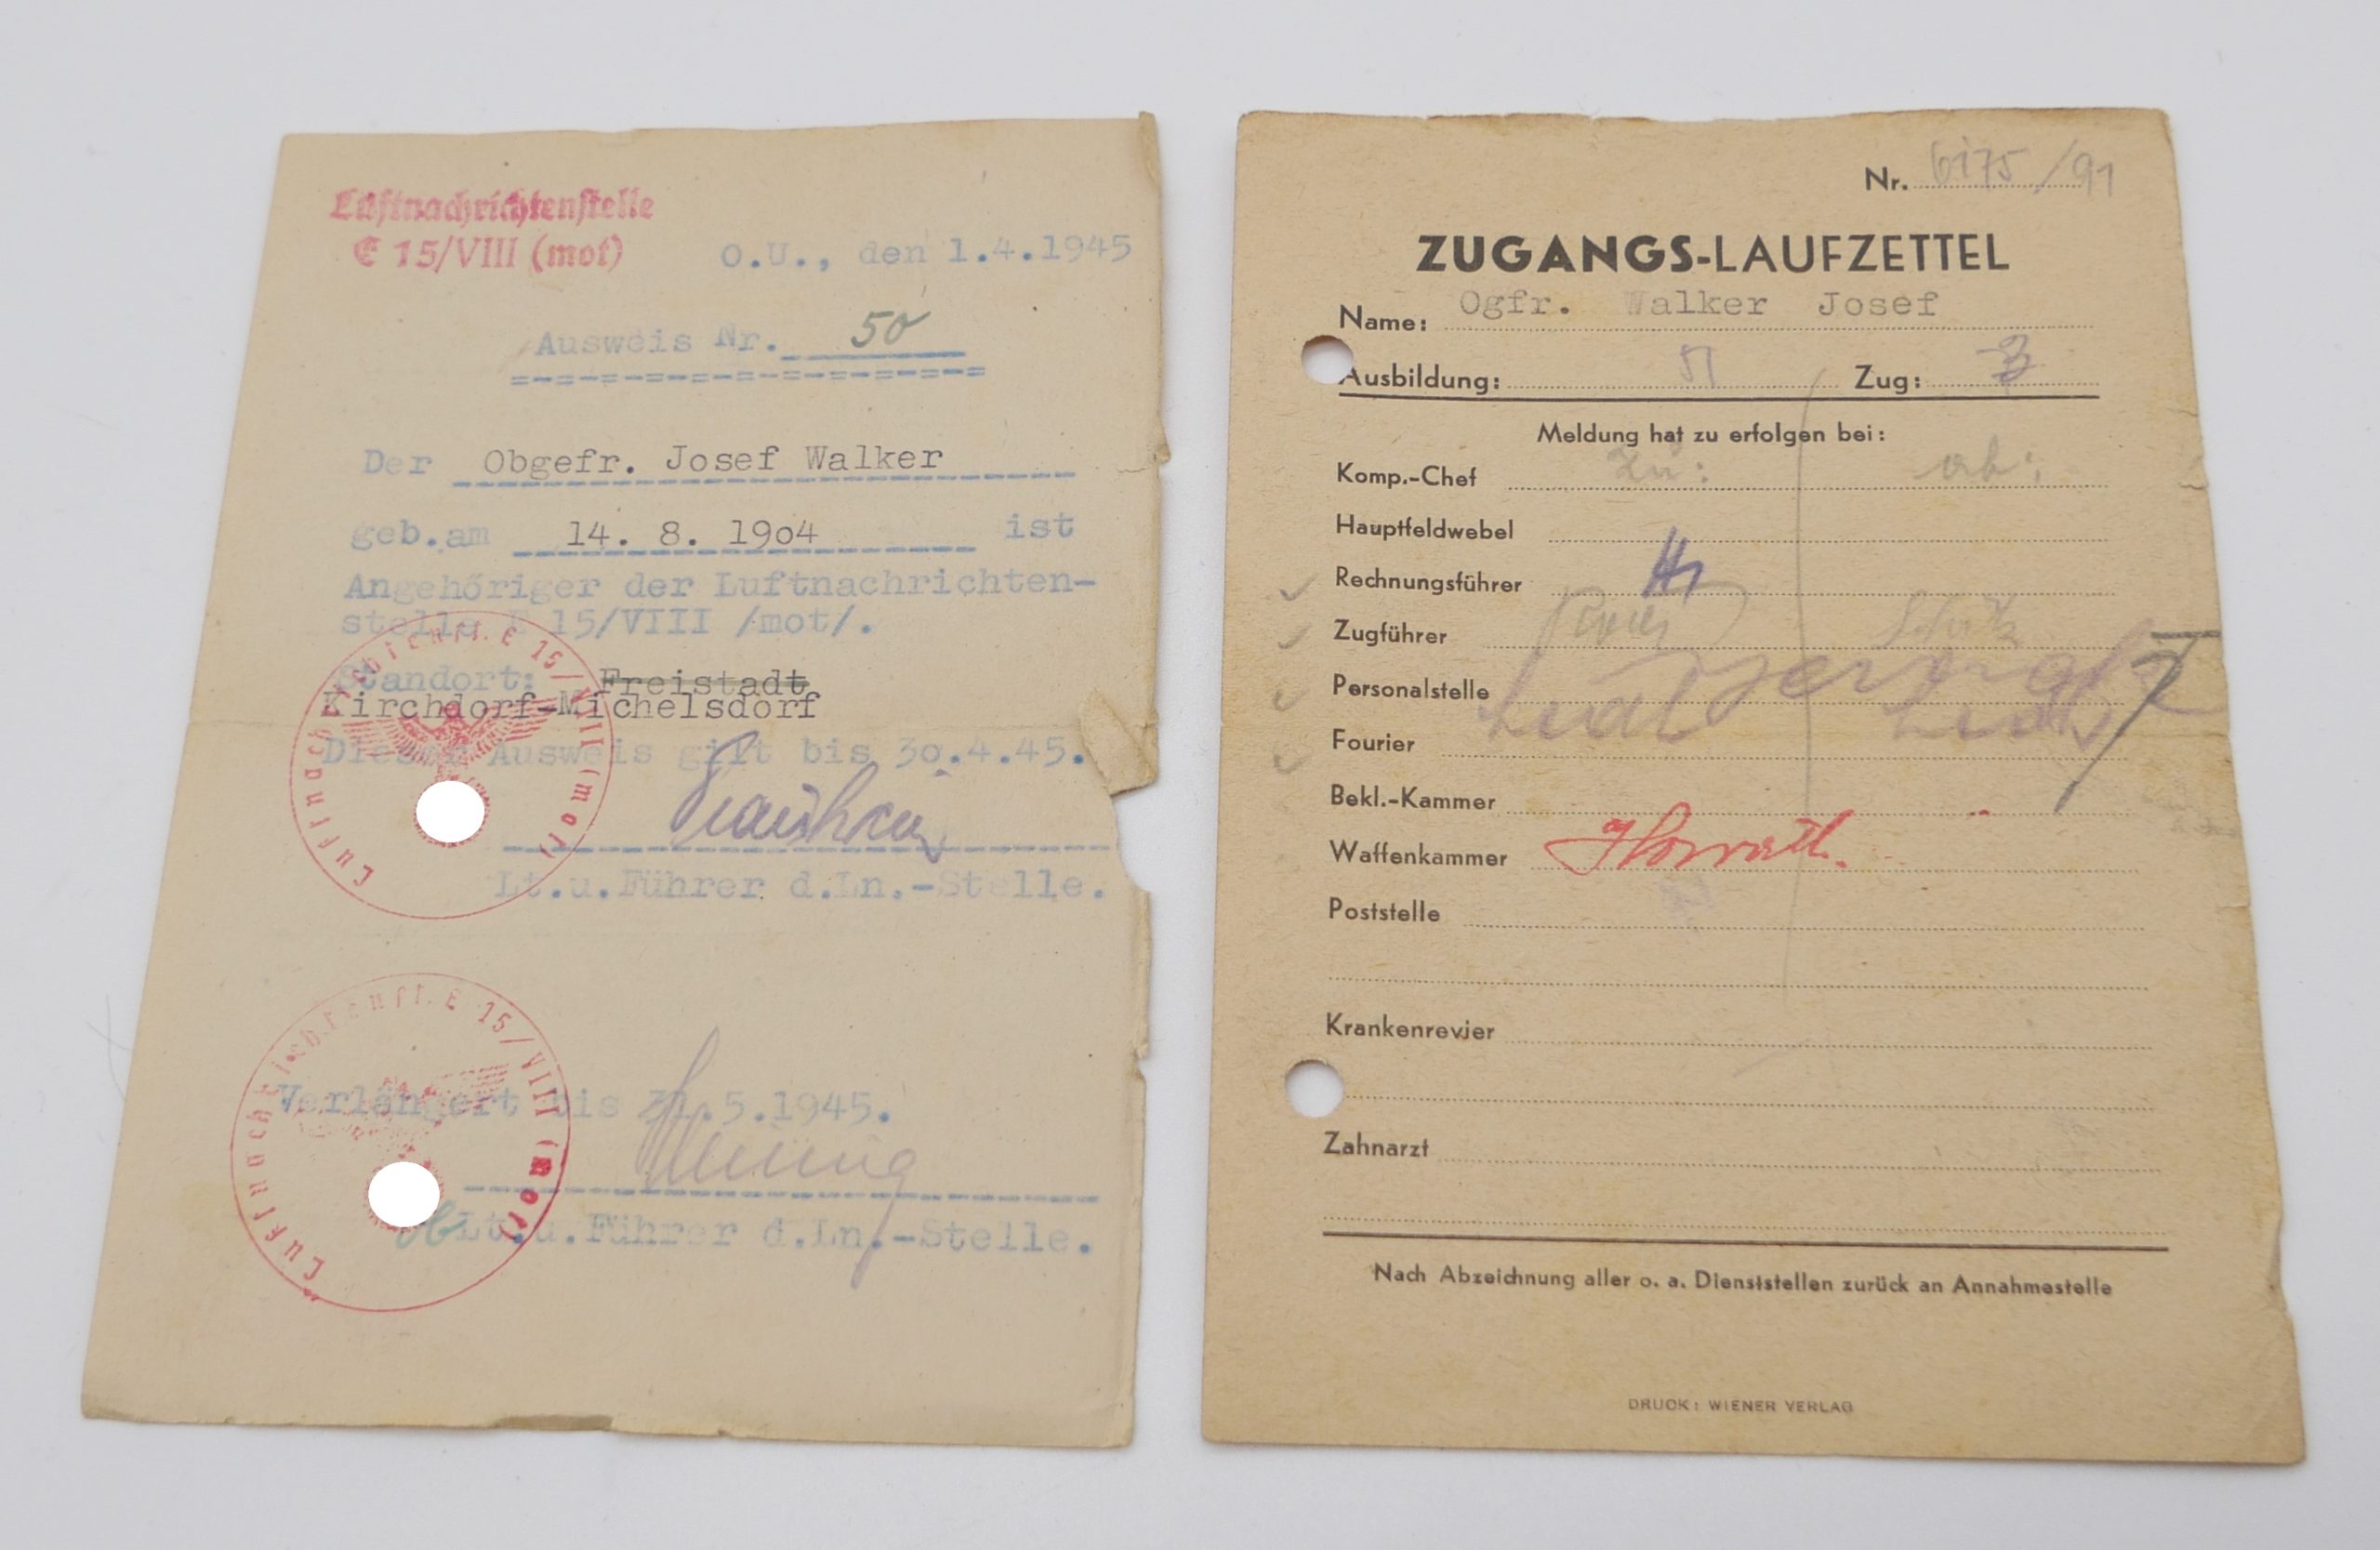 Luftnachrichtenstelle
E 15/VIII (mot)
O.U., den 1.4.1945
Ausweis Nr. 50
Der Obgefr. Josef Walker
geb.am 14. 8. 19o4 ist
Angehöriger der Luftnachrichten-
stelle E 15/VIII /mot/.
Standort: Freistadt
Kirchdorf-Michelsdorf
Dieser Ausweis gilt bis 3o.4.45.
Lt.u.Führer d.Ln.-Stelle.
Luftnachrichtenst. E 15/VIII (mot)
Verlängert bis 31.5.1945.
Lt.u.Führer d.Ln.-Stelle.
Luftnachrichtenst. E 15/VIII (mot)
Nr. 6175/91
ZUGANGS-LAUFZETTEL
Name: Ogfr. Walker Josef
Ausbildung: Zug: 3
Meldung hat zu erfolgen bei:
Komp.-Chef zu: ab:
Hauptfeldwebel
Rechnungsführer
Zugführer
Personalstelle
Fourier
Bekl.-Kammer
Waffenkammer Horvath.
Poststelle
Krankenrevier
Zahnarzt
Nach Abzeichnung aller o. a. Dienststellen zurück an Annahmestelle
DRUCK: WIENER VERLAG